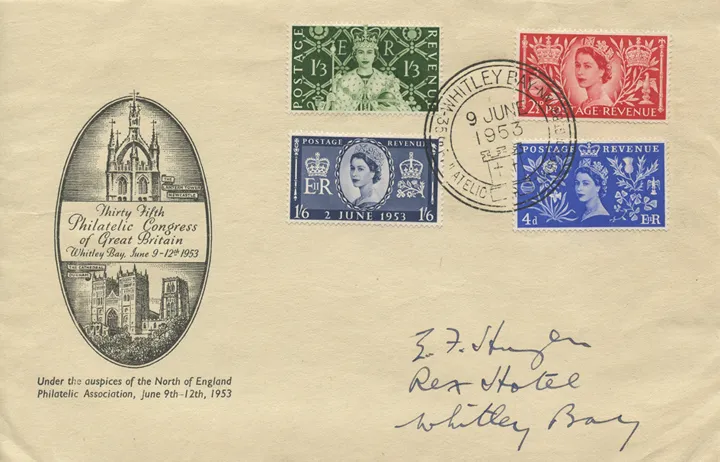 THE LANTERN TOWER
NEWCASTLE
Thirty Fifth
Philatelic Congress
of Great Britain
Whitley Bay, June 9-12th 1953
THE CATHEDRAL
DURHAM
Under the auspices of the North of England
Philatelic Association, June 9th-12th, 1953
POSTAGE
E R
REVENUE
1/3 1/3
2½D POSTAGE·REVENUE
POSTAGE REVENUE
E II R
1/6 2 JUNE 1953 1/6
POSTAGE REVENUE
4d E II R
WHITLEY BAY
9 JUNE
1953
Rex Hotel
Whitley Bay